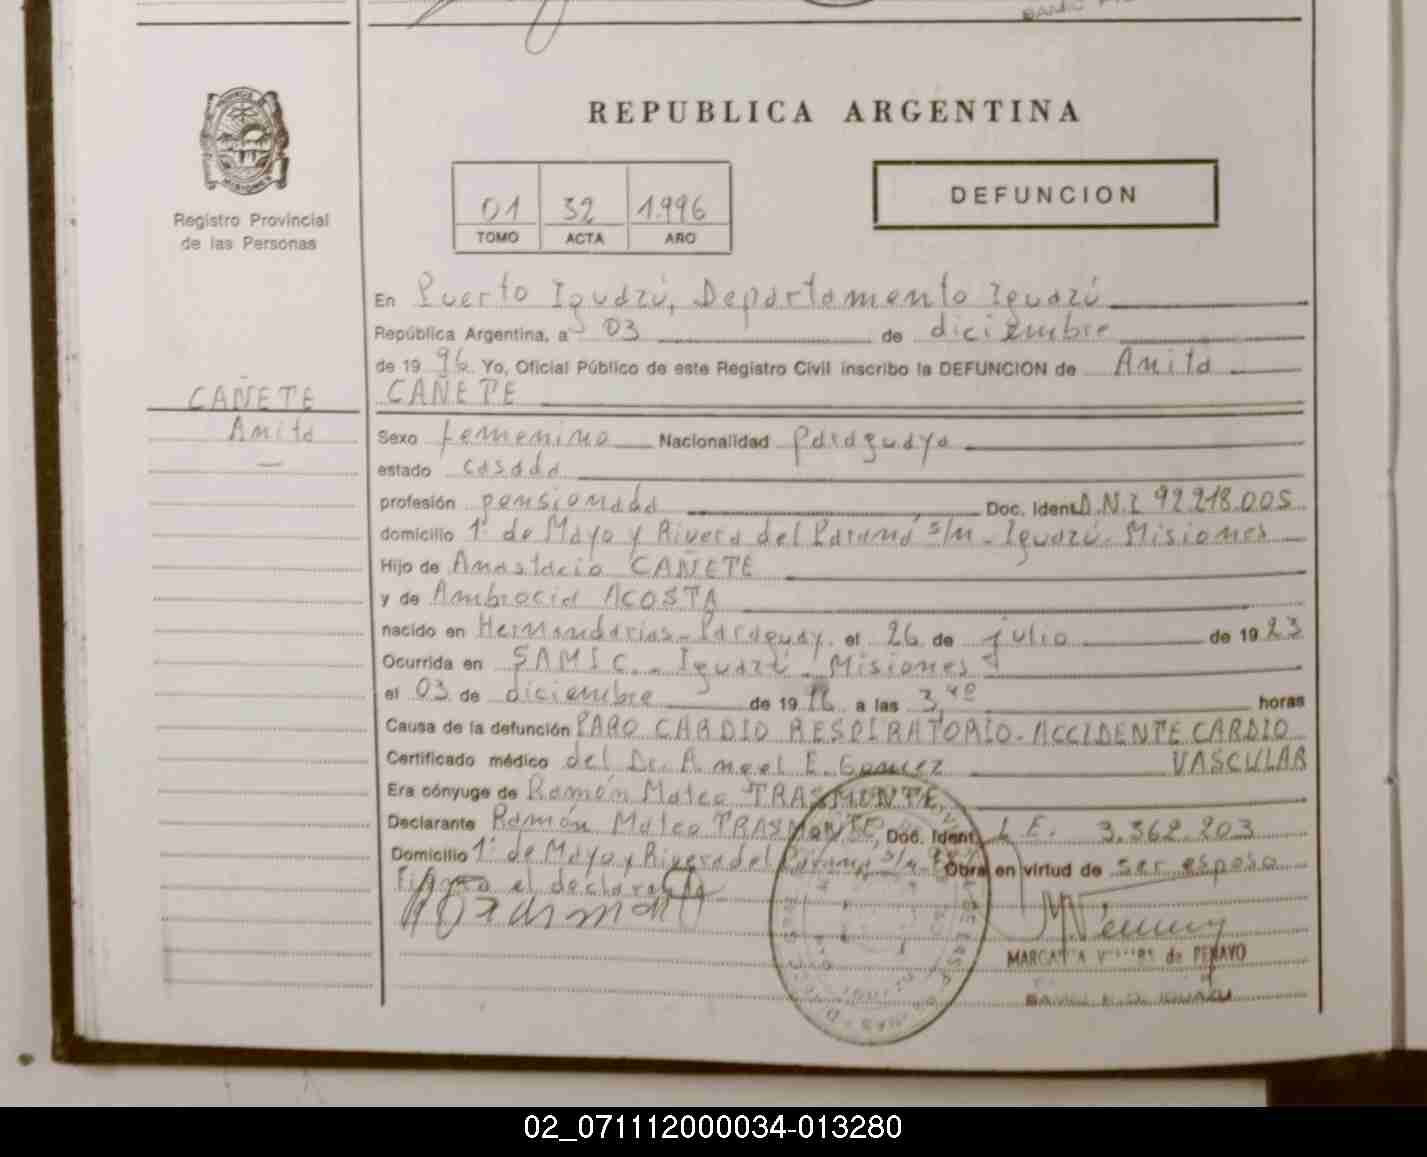 REPUBLICA ARGENTINA
DEFUNCION
01 32 1.996
TOMO ACTA AÑO
Registro Provincial
de las Personas
En Puerto Iguazú, Departamento Iguazú
República Argentina, a 03 de diciembre
de 19 96. Yo, Oficial Público de este Registro Civil inscribo la DEFUNCION de Amita
CAÑETE
CAÑETE
Amita
Sexo femenino Nacionalidad paraguaya
estado casada
profesión pensionada Doc. Ident. D.N.I. 92.218.005
domicilio 1° de Mayo y Rivera del Paraná s/n - Iguazú - Misiones
Hijo de Anastacio CAÑETE
y de Ambrocia ACOSTA
nacido en Hernandarias - Paraguay. el 26 de julio de 19 23
Ocurrida en SAMIC. - Iguazú - Misiones
el 03 de diciembre de 19 96 a las 3,40 horas
Causa de la defunción PARO CARDIO RESPIRATORIO - ACCIDENTE CARDIO
VASCULAR
Certificado médico del Dr. Angel E. Gomez
Era cónyuge de Ramón Mateo TRASMONTE,
Declarante Ramón Mateo TRASMONTE, Doc. Ident. L.E. 3.362.203
Domicilio 1° de Mayo y Rivera del Paraná s/n Obra en virtud de ser esposo
Firma el declarante
de PENAYO
SAMIC P.O. IGUAZU
02_071112000034-013280